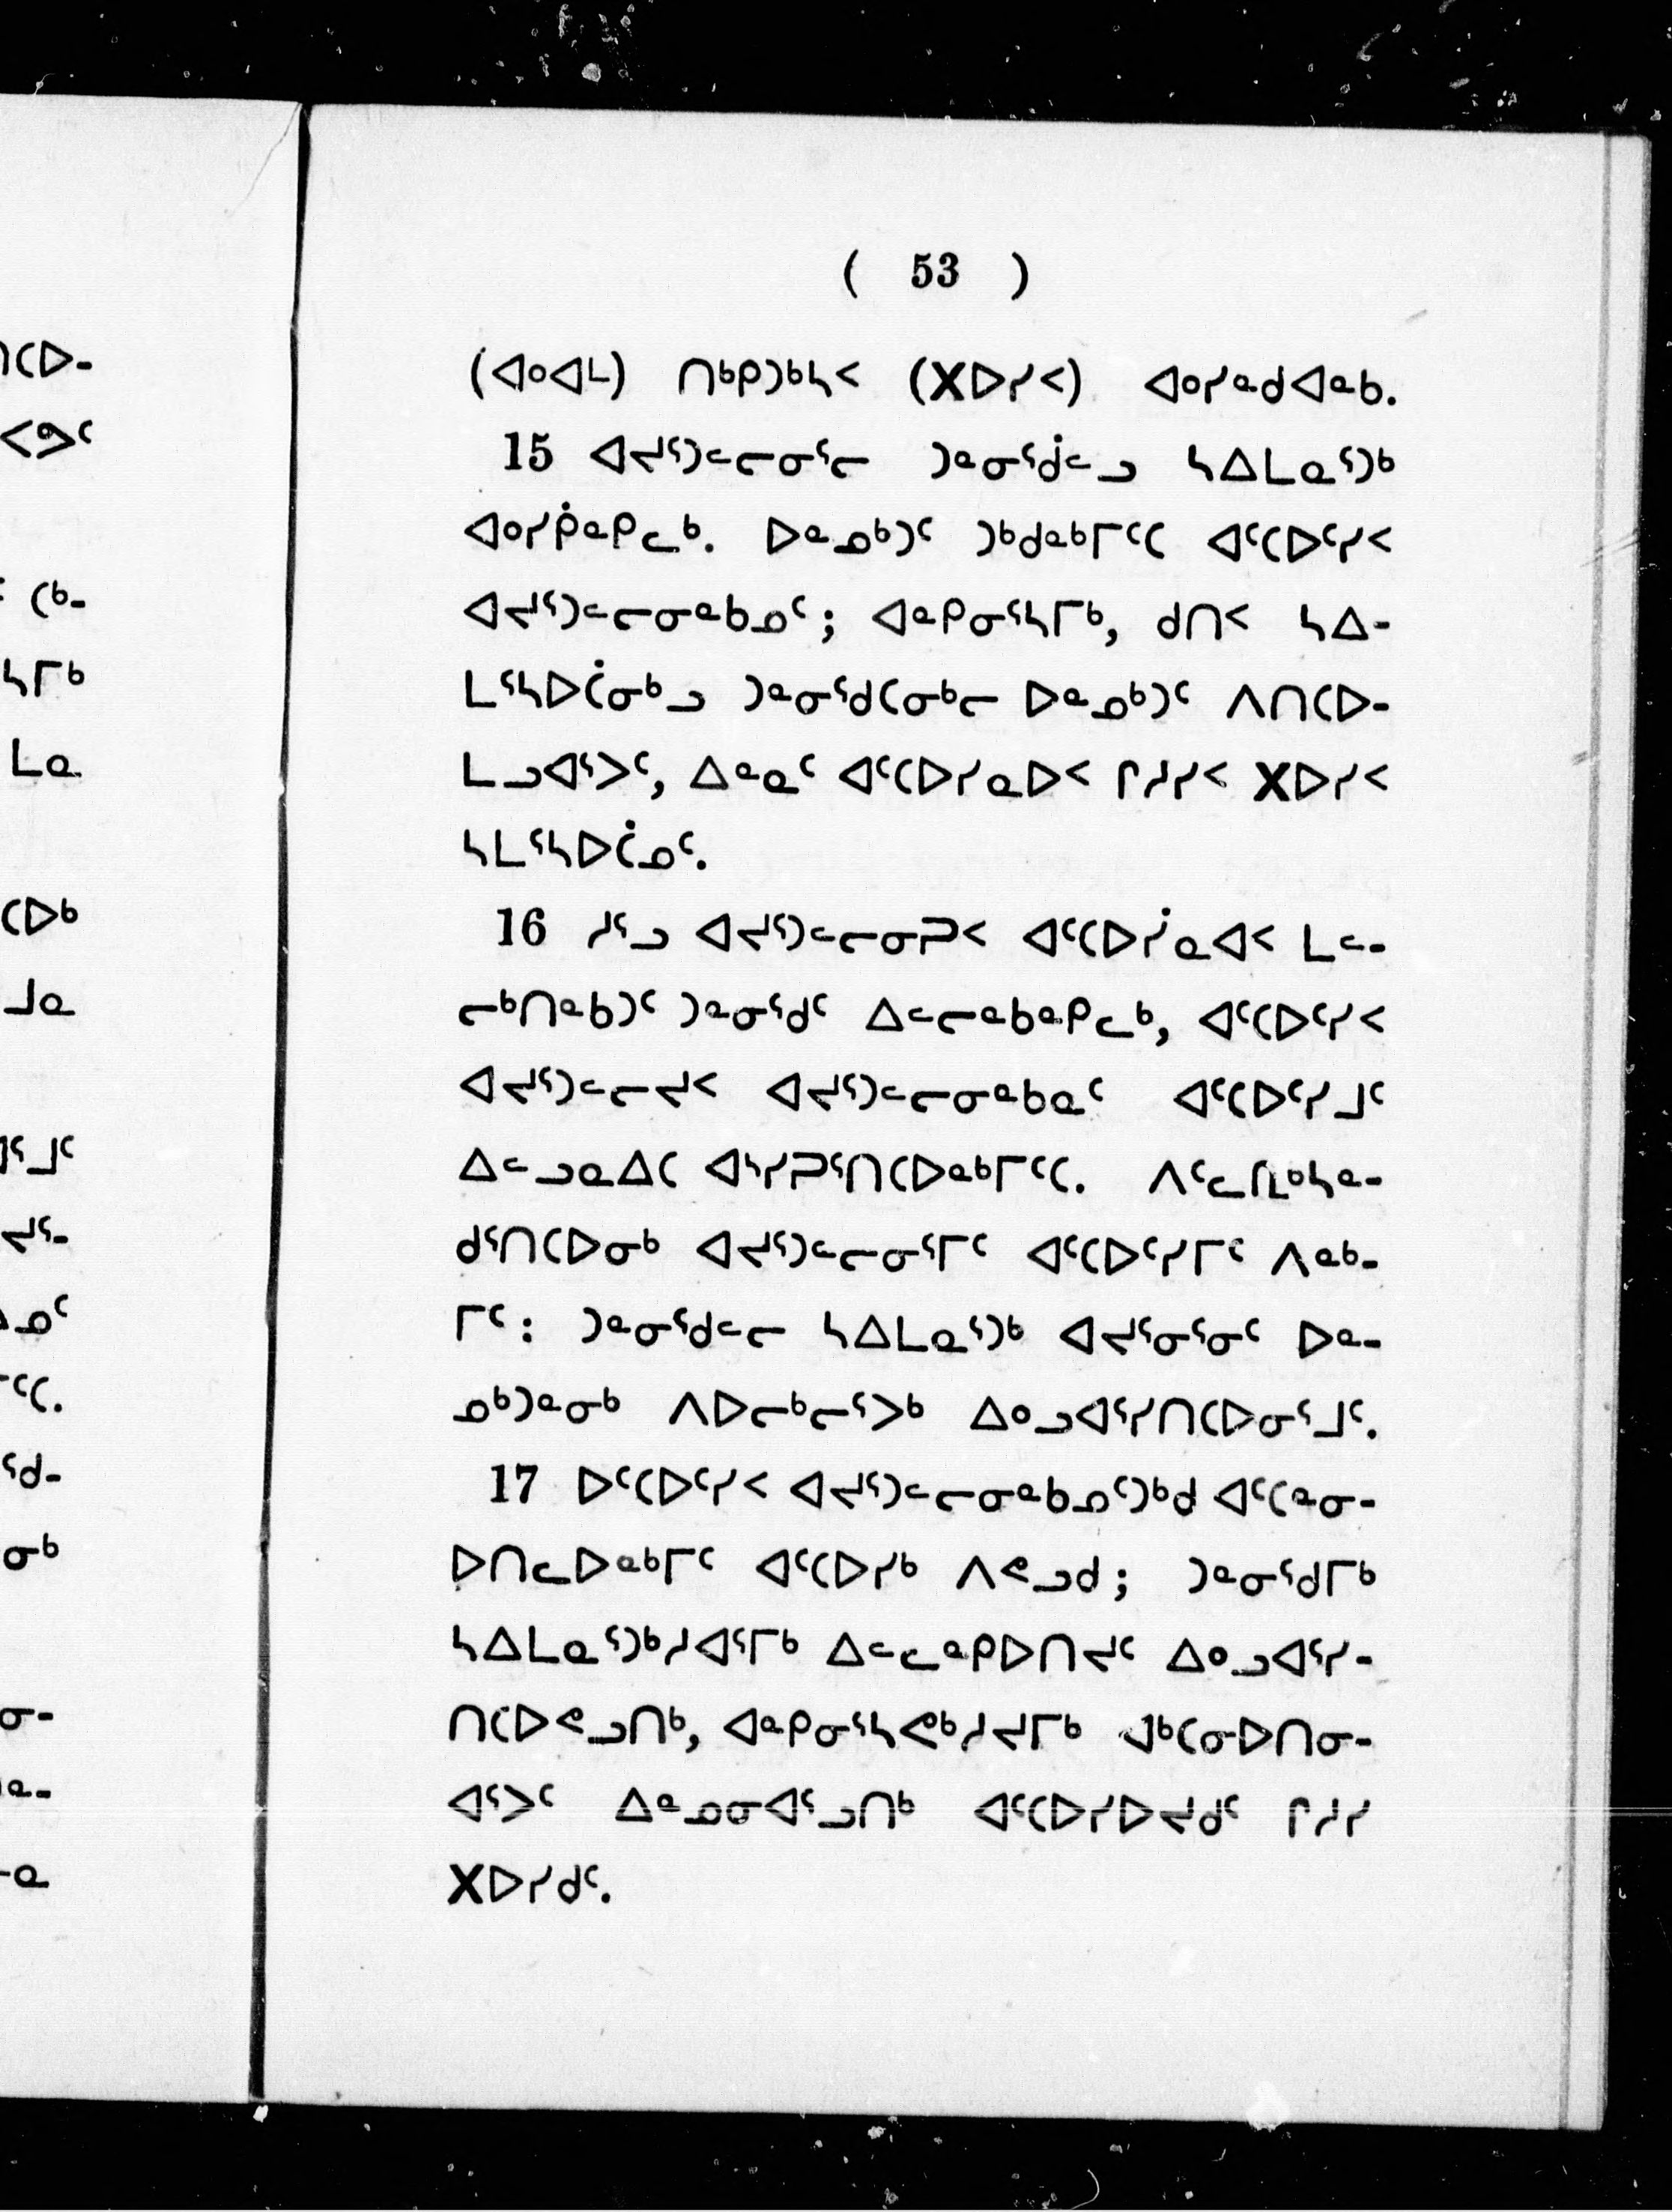 ( 53 )
(ᐊᐤᐊᒻ) ᑎᒃᑭᑐᒃᓴᑉ (Xᐅᓯᑉ) ᐊᐤᓯᓐᑯᐊᓐᑲ.
15 ᐊᔪᕐᑐᓪᓕᓂᕐᓕ ᑐᓐᓂᕐᑰᓪᓗ ᓴᐃᒪᓇᕐᑐᒃ
ᐊᐤᓯᑮᓐᑭᓚᒃ. ᐅᓐᓄᒃᑐᑦ ᑐᒃᑯᓐᒃᒥᑦᑕ ᐊᑦᑕᐅᑦᓯᑉ
ᐊᔪᕐᑐᓪᓕᓂᓐᑲᓄᑦ; ᐊᓐᑭᓂᕐᓴᒥᒃ, ᑯᑎᑉ ᓴᐃ-
ᒪᕐᓴᐅᑖᓂᒃᓗ ᑐᓐᓂᕐᑯᑕᓂᒃᓕ ᐅᓐᓄᒃᑐᑦ ᐱᑎᑕᐅ-
ᒪᓗᐊᕐᐳᑦ, ᐃᓐᓇᑦ ᐊᑦᑕᐅᓯᓇᐅᑉ ᒋᓱᓯᑉ Xᐅᓯᑉ
ᓴᒪᕐᓴᐅᑖᓄᑦ.
16 ᓱᕐᓗ ᐊᔪᕐᑐᓪᓕᓂᕈᑉ ᐊᑦᑕᐅᓰᓇᐊᑉ ᒪᓪ-
ᓕᒃᑎᓐᑲᑐᑦ ᑐᓐᓂᕐᑯᑦ ᐃᓪᓕᓐᑲᓐᑭᓚᒃ, ᐊᑦᑕᐅᑦᓯᑉ
ᐊᔪᕐᑐᓪᓕᔪᑉ ᐊᔪᕐᑐᓪᓕᓂᓐᑲᓇᑦ ᐊᑦᑕᐅᑦᓯᒧᑦ
ᐃᓪᓗᓇᐃᑕ ᐊᔅᓯᕈᕐᑎᑕᐅᓐᒃᒥᑦᑕ. ᐱᑦᓚᕆᒻᒃᓴᓐ-
ᑯᕐᑎᑕᐅᓂᒃ ᐊᔪᕐᑐᓪᓕᓂᕐᒥᑦ ᐊᑦᑕᐅᑦᓯᒥᑦ ᐱᓐᒃ-
ᒥᑦ: ᑐᓐᓂᕐᑯᓪᓕ ᓴᐃᒪᓇᕐᑐᒃ ᐊᔪᕐᓂᕐᓂᑦ ᐅᓐ-
ᓄᒃᑐᓐᓂᒃ ᐱᐅᓕᒃᓕᕐᐳᒃ ᐃᐤᓗᐊᕐᓯᑎᑕᐅᓂᕐᒧᑦ.
17 ᐅᑦᑕᐅᑦᓯᑉ ᐊᔪᕐᑐᓪᓕᓂᓐᑲᓄᑦᑐᒃᑯ ᐊᑦᑕᓐᓂ-
ᐅᑎᓚᐅᓐᒃᒥᑦ ᐊᑦᑕᐅᓯᒃ ᐱᕝᓗᑯ; ᑐᓐᓂᕐᑯᒥᒃ
ᓴᐃᒪᓇᕐᑐᒃᓱᐊᕐᒥᒃ ᐃᓪᓚᓐᑭᐅᑎᔪᑦ ᐃᐤᓗᐊᕐᓯ-
ᑎᑕᐅᕝᓗᑎᒃ, ᐊᓐᑭᓂᕐᓴᕙᒃᓱᔪᒥᒃ ᐊᒃᑕᓂᐅᑎᓂ-
ᐊᕐᐳᑦ ᐃᓐᓄᓂᐊᕐᓗᑎᒃ ᐊᑦᑕᐅᓯᐅᔪᑯᑦ ᒋᓱᓯ
Xᐅᓯᑯᑦ.